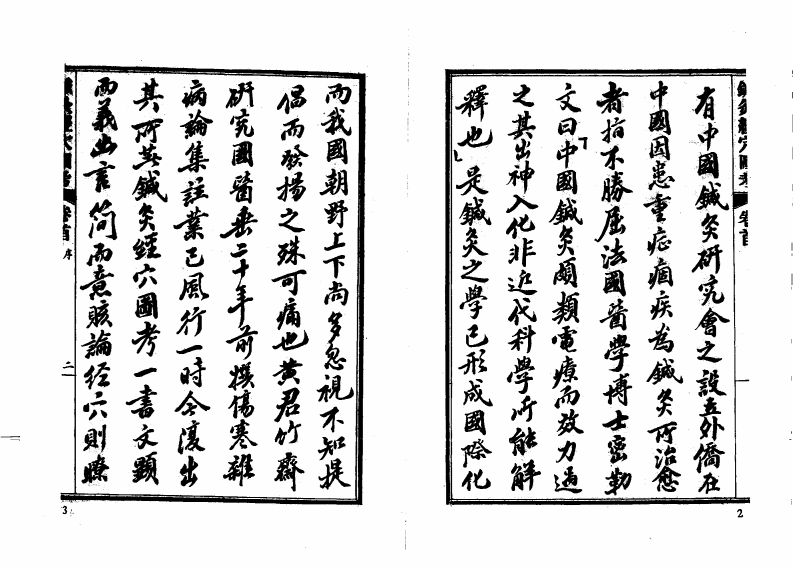 有中國鍼灸研究會之設立外僑在
中國因患重症痼疾為鍼灸所治愈
者指不勝屈法國醫學博士密勒
文曰「中國鍼灸頗類電療而效力過
之其出神入化非近代科學所能解
釋也」是鍼灸之學已形成國際化
鍼灸經穴圖考 卷首
一
2
而我國朝野上下尚多忽視不知提
倡而發揚之殊可痛也黃君竹齋
研究國醫垂二十年前撰傷寒雜
病論集註業已風行一時今復出
其所著鍼灸經穴圖考一書文顯
而義幽言簡而意賅論經穴則瞭
鍼灸經穴圖考 卷首 序
二
3